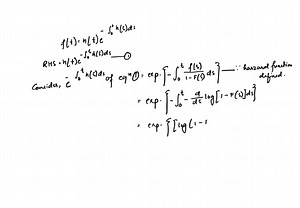 f(t) = h(t) e^{-∫_0^t h(s)ds}
RHS = h(t) e^{-∫_0^t h(s)ds} ——①
Consider, e^{-∫_0^t h(s)ds} of eqⁿ ① = exp. [-∫_0^t f(s)/(1-F(s)) ds] —— ∵ hazard function defined.
= exp. [-∫_0^t -d/ds log[1-F(s)]ds}
= exp. {[log(1-1